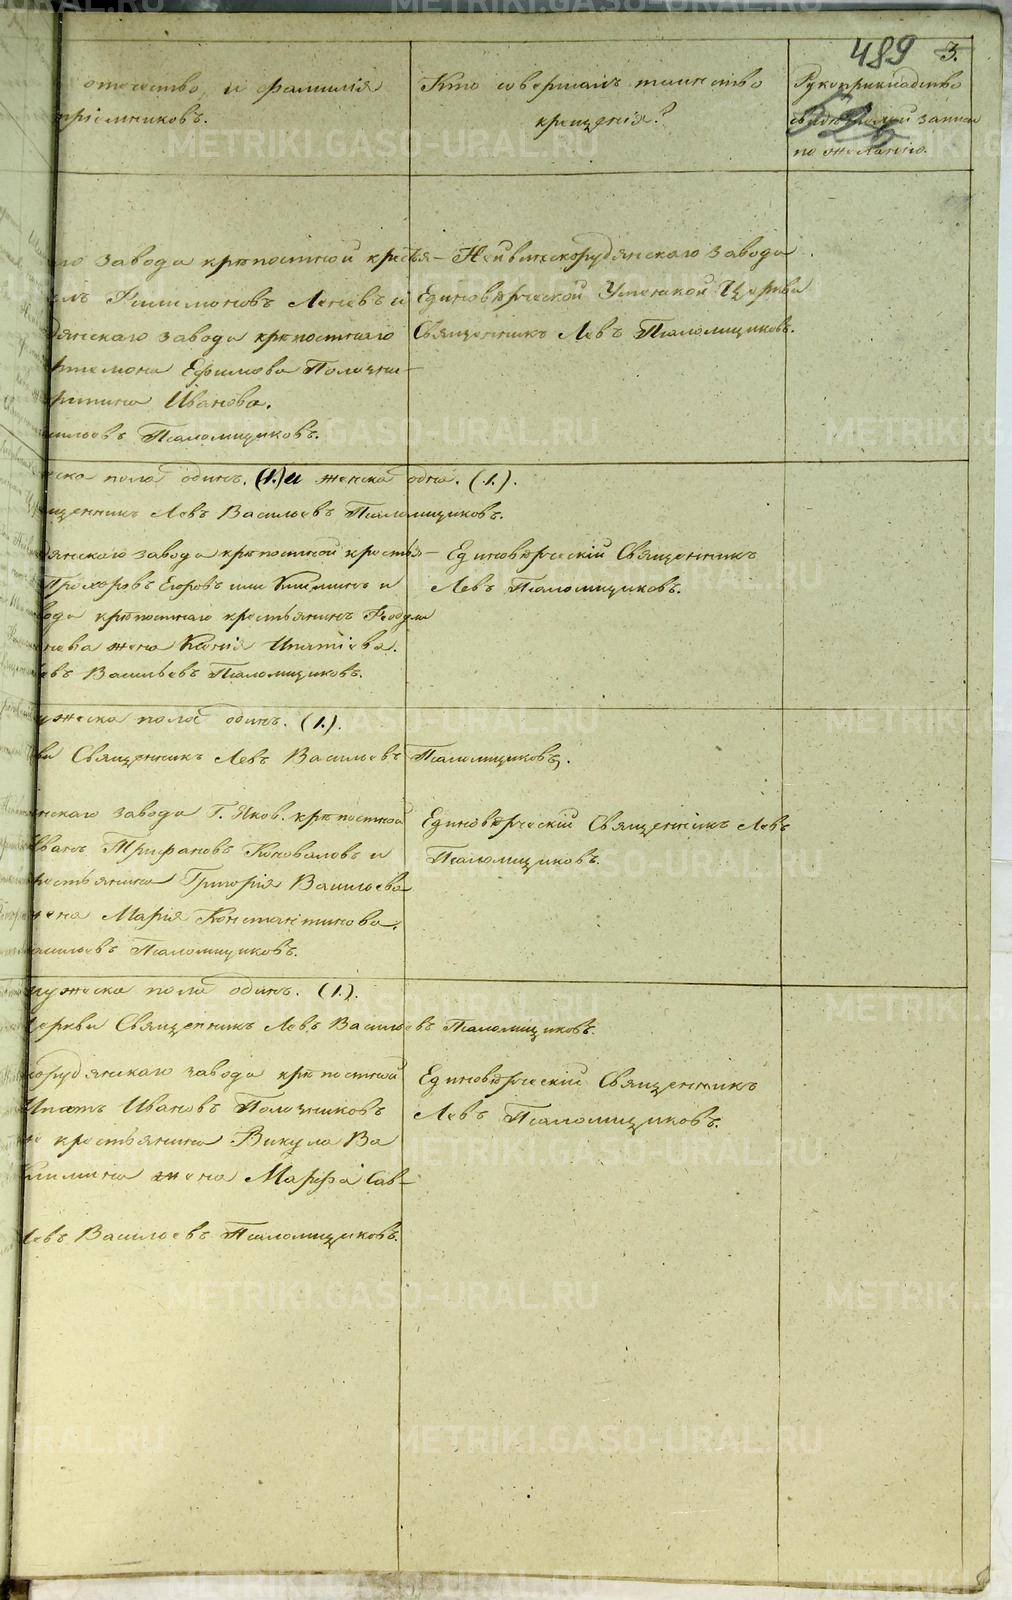 489 3.
отечество, и фамилія
пріемниковъ.
Кто совершалъ таинство
крещенія?
Рукоприкладство
свидѣтелей записи
по желанію.
526
завода крѣпостной кресть-
Филимоновъ Леневъ и
янскаго завода крѣпостнаго
Ефимова Полечни-
Иванова.
сильевъ Псаломщиковъ.
Нейвинскорудянскаго завода
Единовѣрческой Успенской Церкви
Священникъ Левъ Псаломщиковъ.
ска пола одинъ. (1.) и женска одна. (1.).
щенникъ Левъ Васильевъ Псаломщиковъ.
янскаго завода крѣпостной кресть-
Прохоровъ Егоровъ или и
вода крѣпостнаго крестьянина Феодула
нова жена Ксенія Ипатіева.
евъ Васильевъ Псаломщиковъ.
Единовѣрческій Священникъ
Левъ Псаломщиковъ.
ужеска пола одинъ. (1.).
ви Священникъ Левъ Васильевъ Псаломщиковъ.
нскаго завода Г. Яков. крѣпостной
Иванъ Трифановъ Коноваловъ и
рестьянина Григорія Васильева
жена Марія Константинова.
асильевъ Псаломщиковъ.
Единовѣрческій Священникъ Левъ
Псаломщиковъ.
мужеска пола одинъ. (1.).
Церкви Священникъ Левъ Васильевъ Псаломщиковъ.
корудянскаго завода крѣпостной
Ипатъ Ивановъ Полечниковъ
крестьянина Викула Ва
жена Марѳа Сав-
Левъ Васильевъ Псаломщиковъ.
Единовѣрческій Священникъ
Левъ Псаломщиковъ.
METRIKI.GASO-URAL.RU